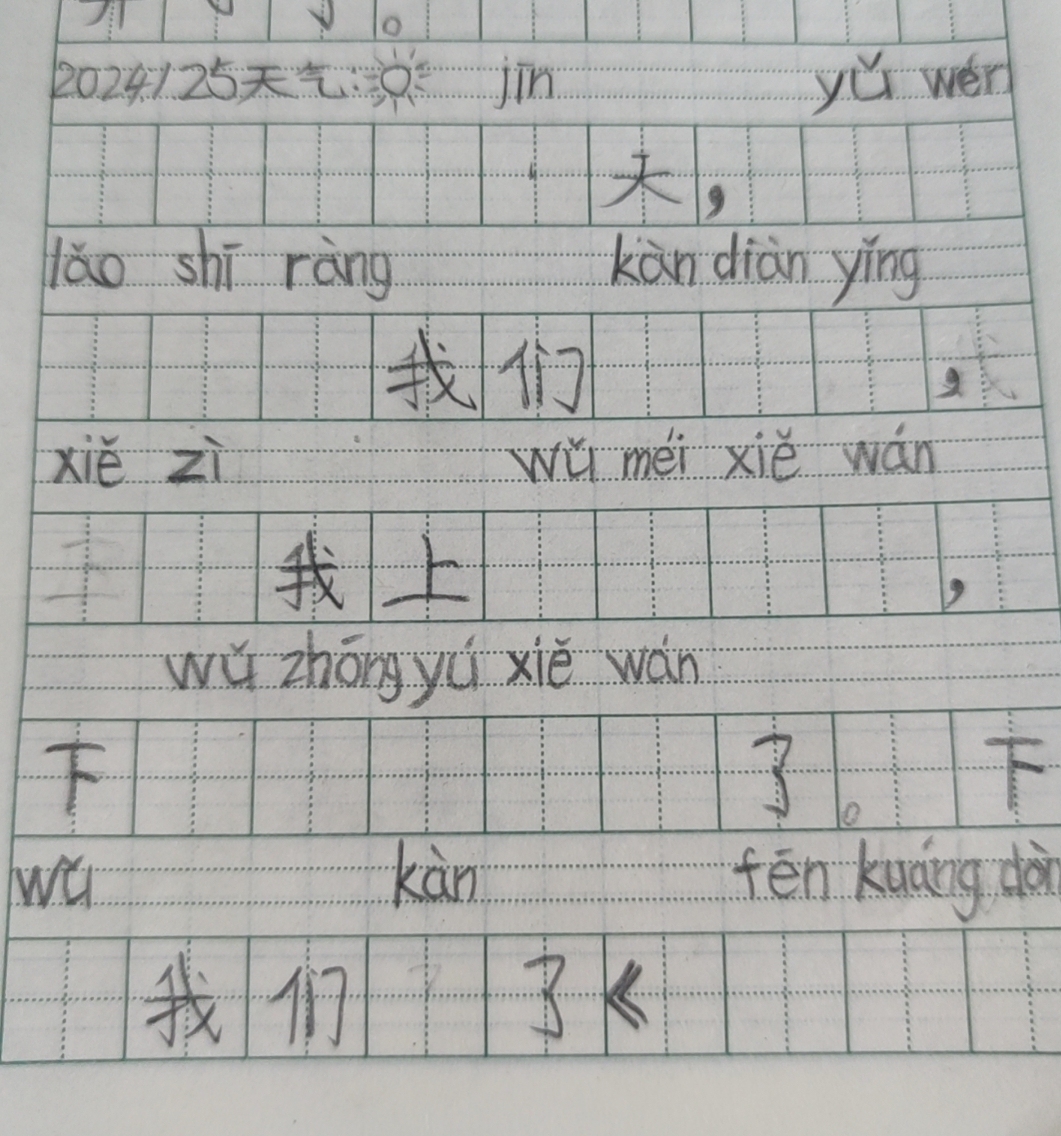 2024.1.25天气: jīn yǔ wén
天，
lǎo shī ràng kàn diàn yǐng
我们，
xiě zì wǔ méi xiě wán
我上，
wǔ zhōng yú xiě wán
下了。下
wǔ kàn fēn kuáng dòn
我们了《